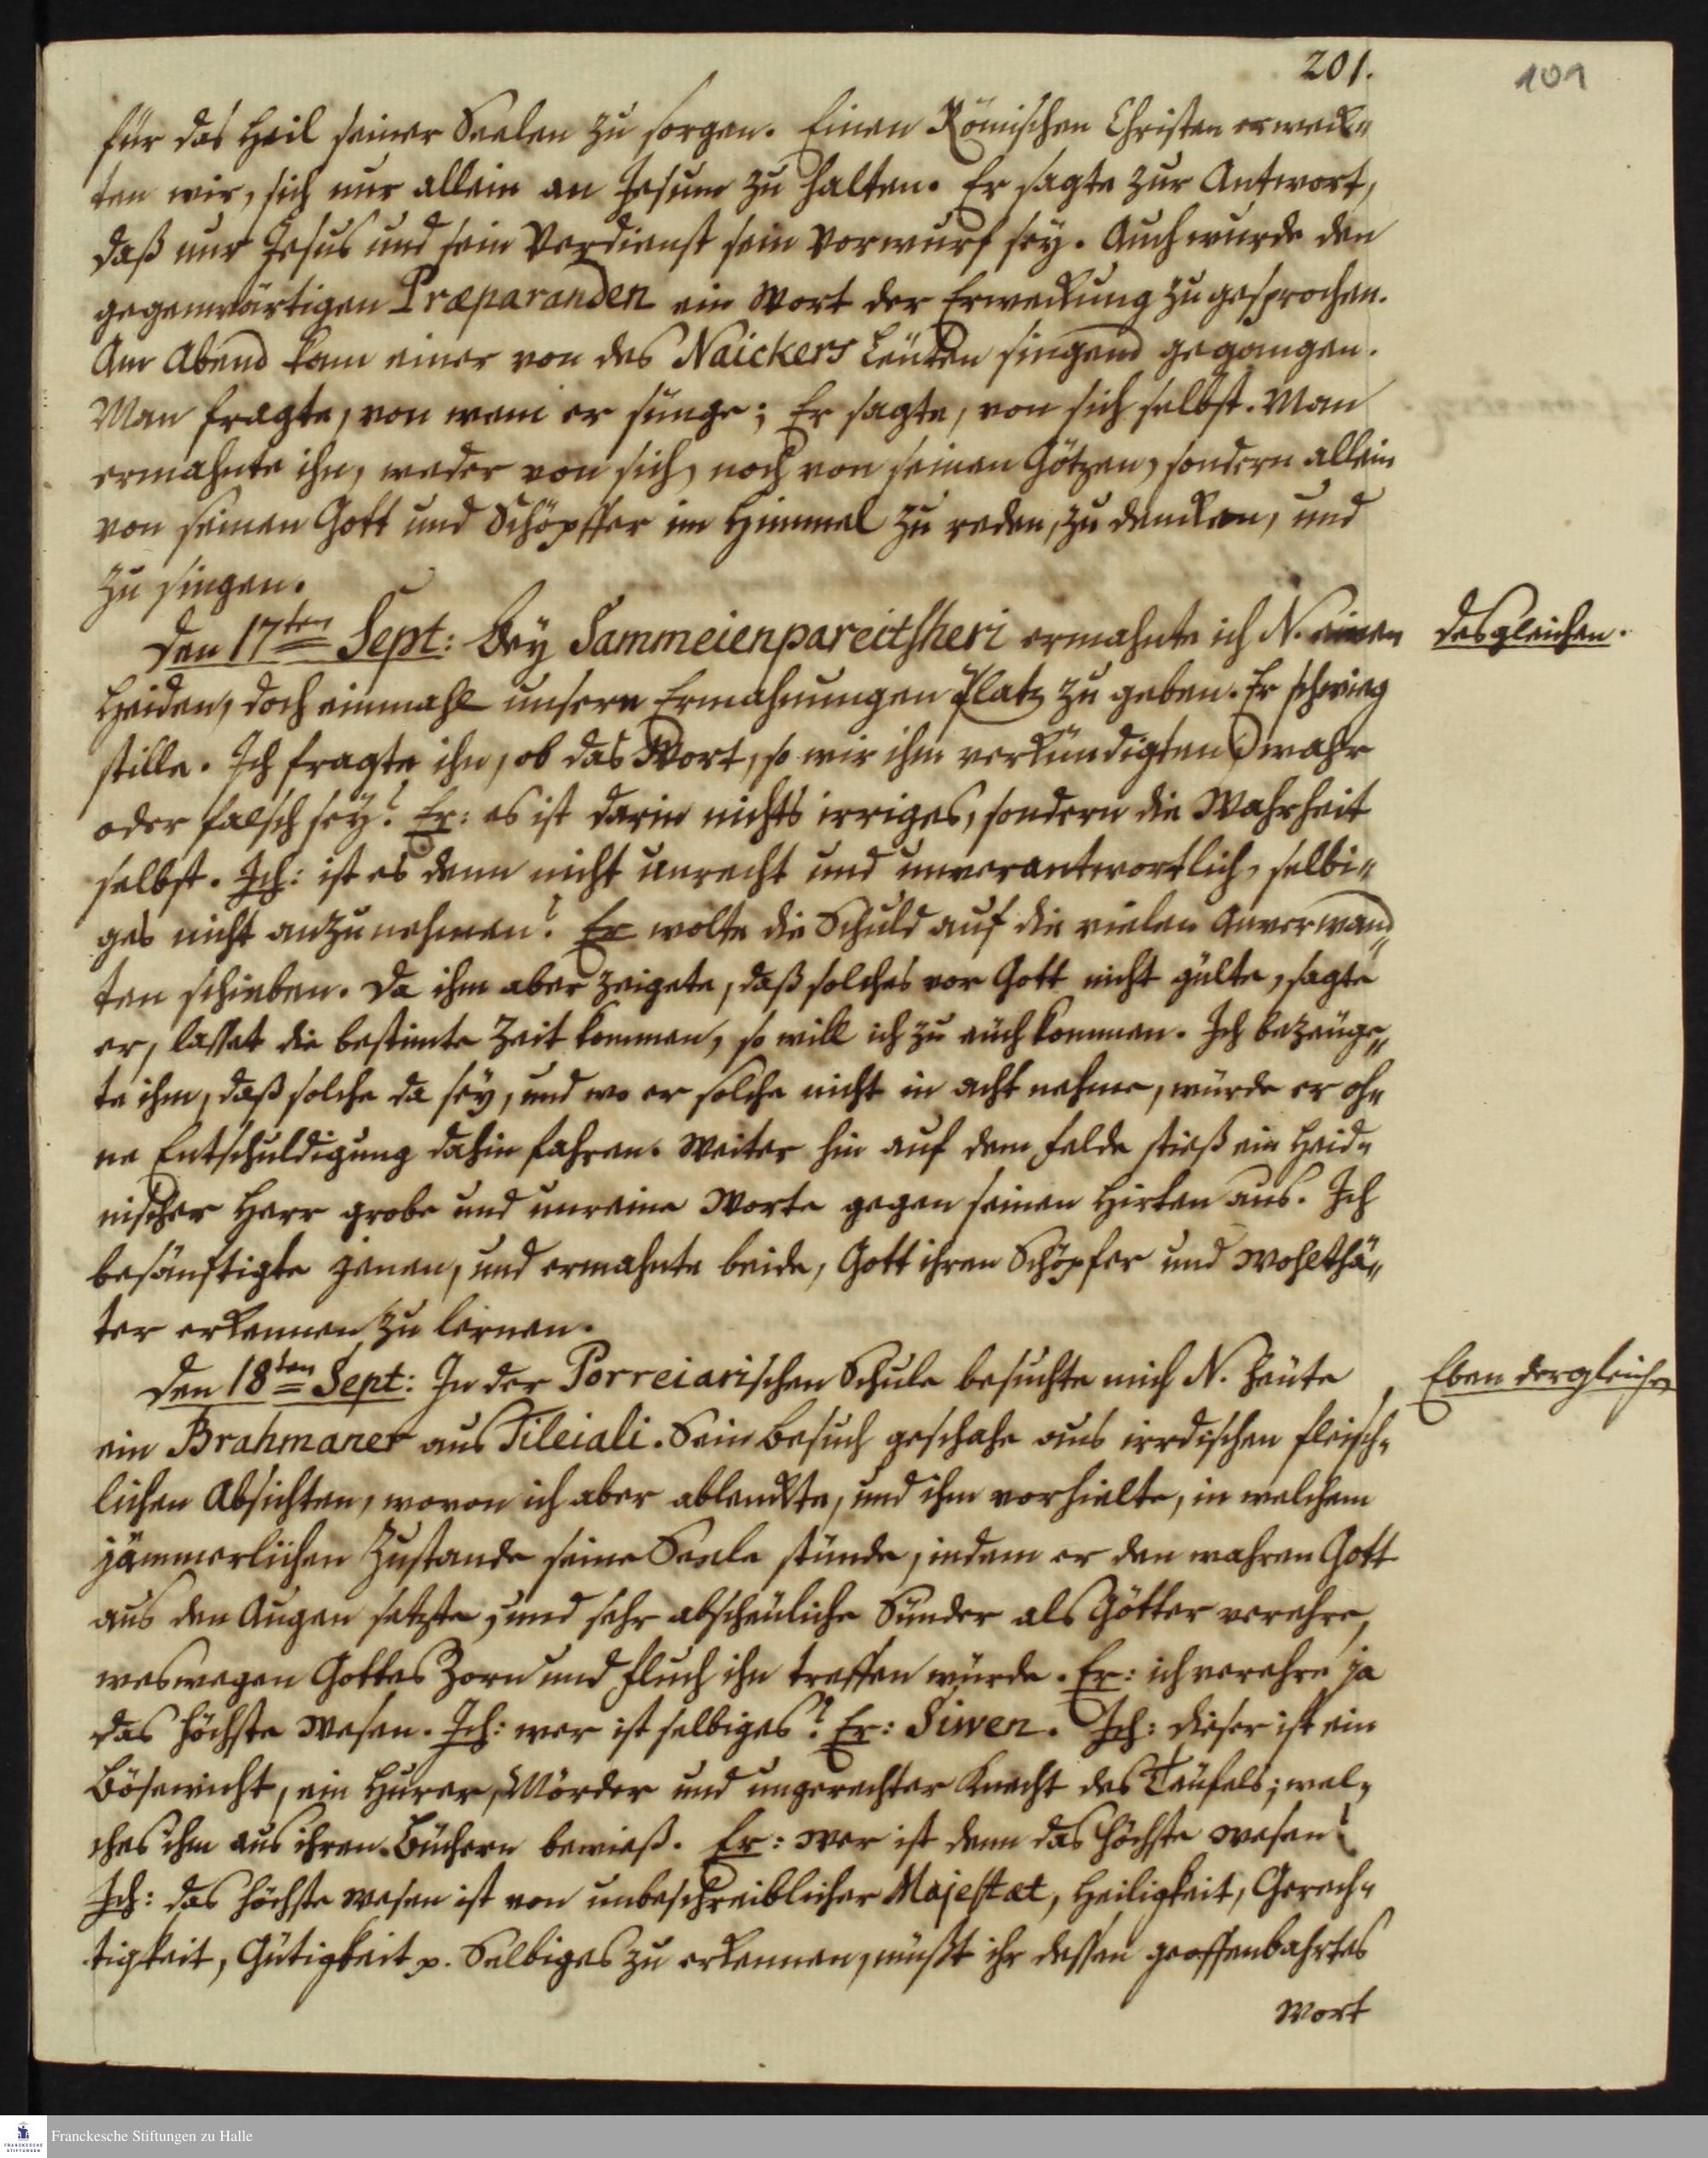 201.
101
für das Heil seiner Seelen zu sorgen. Einen Römischen Christen erweck„
ten wir, sich nur allein an Jesum zu halten. Er sagte zur Antwort,
daß nur Jesus und sein Verdienst sein Vorwurf sey. Auch wurde den
gegenwärtigen Præparanden ein Wort der Erweckung zugesprochen.
Am Abend kam einer von des Naickers Leuten singend gegangen.
Man fragte, von wem er sünge; Er sagte, von sich selbst. Man
ermahnte ihn, weder von sich, noch von seinen Götzen, sondern allein
von seinen Gott und Schöpffer im Himmel zu reden, zu dencken, und
zu singen.
Den 17ten Sept: Bey Sammeienpareitsheri ermahnte ich N. einen
desgleichen.
Heiden, doch einmahl unsern Ermahnungen Platz zu geben. Er schwieg
stille. Ich fragte ihn, ob das Wort, so wir ihm verkündigten, wahr
oder falsch sey? Er: es ist darin nichts irriges, sondern die Wahrheit
selbst. Ich: ist es denn nicht unrecht und unverantwortlich, selbi„
ges nicht anzunehmen? Er wolte die Schuld auf die vielen Anverwand„
ten schieben. Da ihm aber zeigete, daß solches vor Gott nicht gülte, sagte
er, lasset die bestimte Zeit kommen, so will ich zu euch kommen. Ich bezeuge„
te ihm, daß solche da sey, und wo er solche nicht in acht nehme, würde er oh„
ne Entschuldigung dahin fahren. Weiter hin auf dem Felde stieß ein Heid„
nischer Herr grobe und unreine Worte gegen seinen Hirten aus. Ich
besänftigte jenen, und ermahnte beide, Gott ihren Schöpfer und Wohlthä„
ter erkennen zu lernen.
Den 18ten Sept: In der Porreiarischen Schule besuchte mich N. heute
Eben dergleichen
ein Brahmaner aus Tileiali. Sein Besuch geschahe aus irrdischen fleisch„
lichen Absichten, wovon ich aber ablenckte, und ihm vorhielte, in welchem
jämmerlichen Zustande seine Seele stünde, indem er den wahren Gott
aus den Augen setzte, und sehr abscheuliche Sünder als Götter verehre,
weswegen Gottes Zorn und Fluch ihn treffen würde. Er: ich verehre ja
das höchste Wesen. Ich: wer ist selbiges? Er: Siwen. Ich: dieser ist ein
Bösewicht, ein Hurer, Mörder und ungerechter Knecht des Teufels; wel„
ches ihm aus ihren Büchern bewieß. Er: Wer ist denn das höchste Wesen?
Ich: das höchste Wesen ist von unbeschreiblicher Majestæt, Heiligkeit, Gerech„
tigkeit, Gütigkeit p. Selbiges zu erkennen, müßt ihr dessen geoffenbahrtes
Wort
Franckesche Stiftungen zu Halle